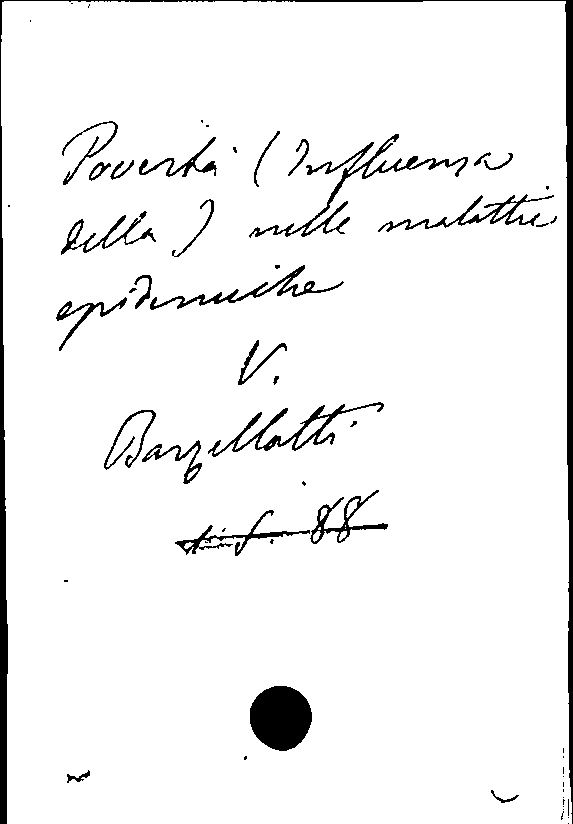 Povertà (Influenza
della) nelle malattie
epidemiche
V.
Barzellotti
88